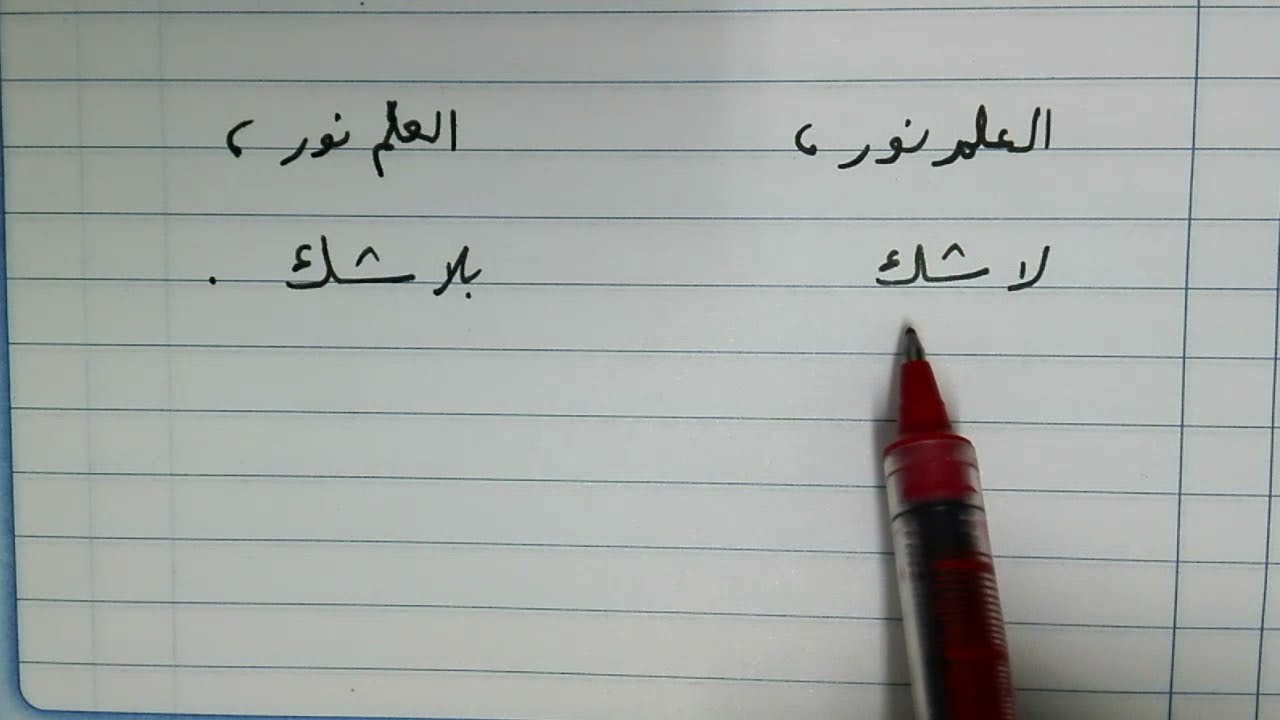 العلم نور ، العلم نور ،
لا شك بلا شك .